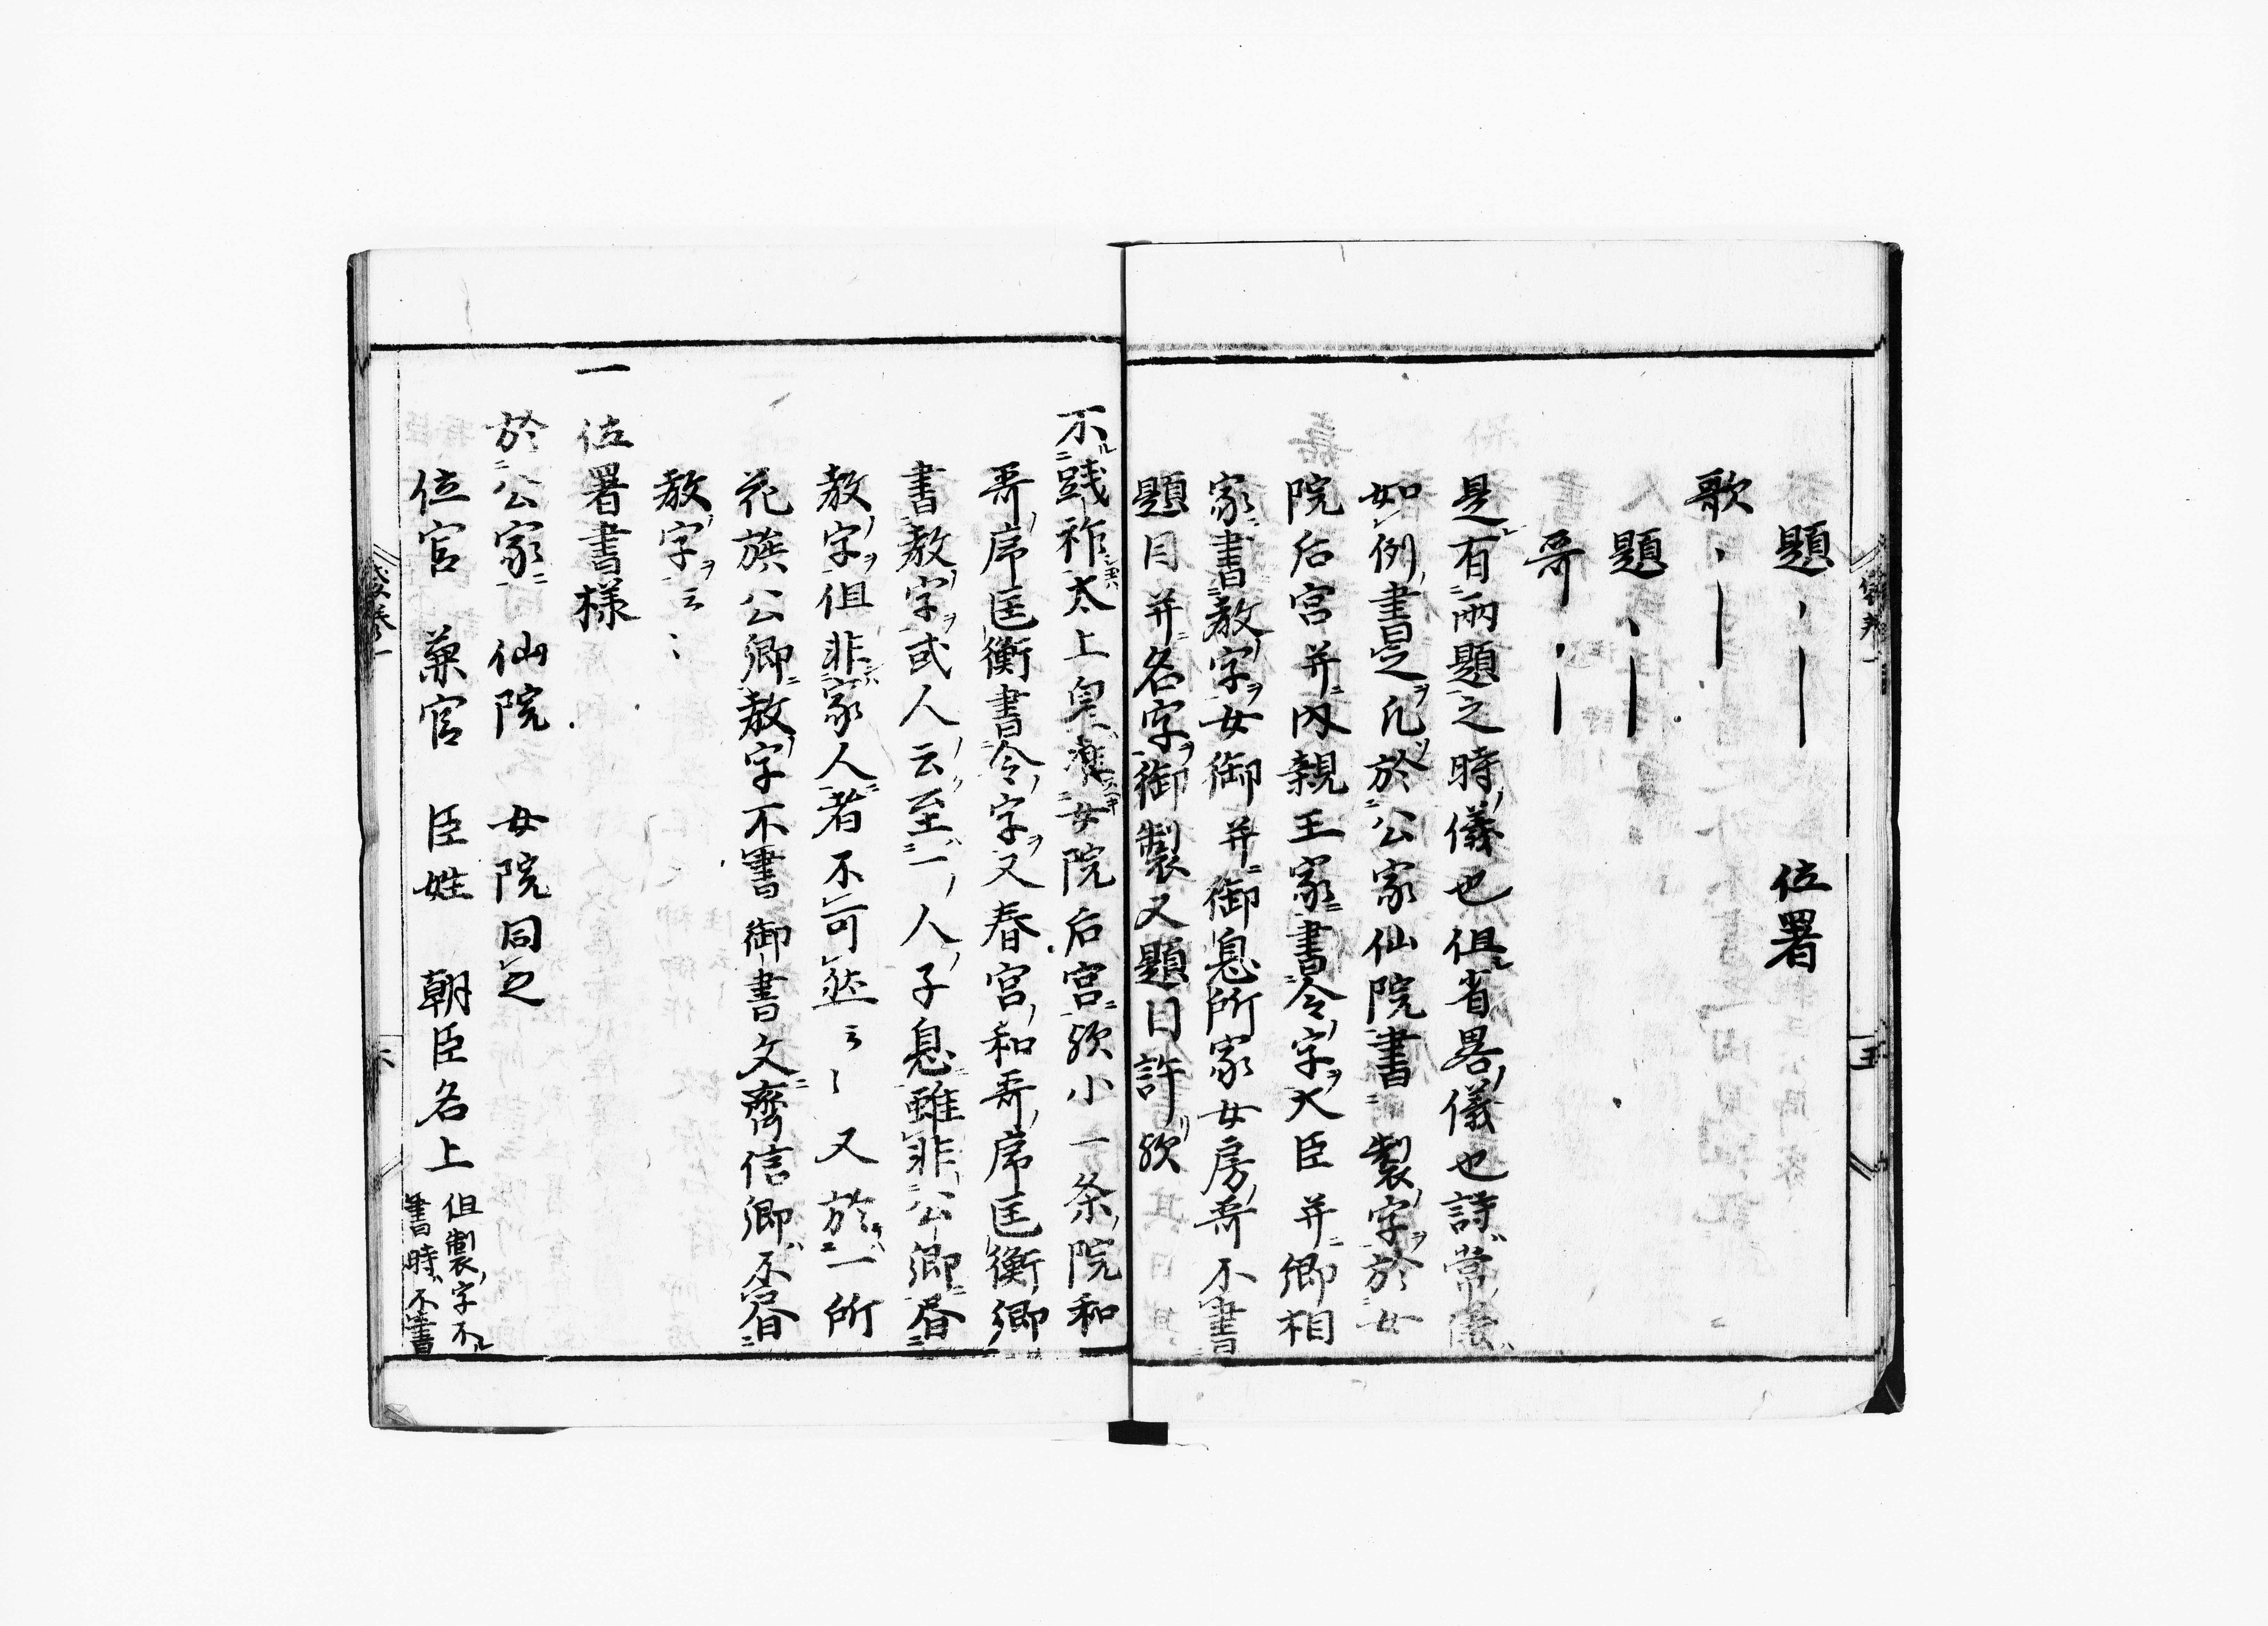 題、｜　位署
歌、｜
題、｜
哥、｜
是有両題之時儀也但省畧儀也詩常儀
如例書是凡於公家仙院書　製字於女
院后宮并内親王家書令字大臣并卿相
家書教字女御并御息所家女房哥不書
題目并名字御製又題目許欤
不践祚太上皇准女院后宮欤小一条院和
哥序匡衡書令字又春宮和哥序匡衡卿
書教字或人云至一人子息雖非公卿昏
教字但非家人者不可然云々又於一所
花族公卿教字不書御書文齊信卿不昏
教字云々
一　位署書様
於公家　仙院　女院同之
位官　兼官　臣姓　朝臣名上
但製字不
書時不書
袋巻一
六
五